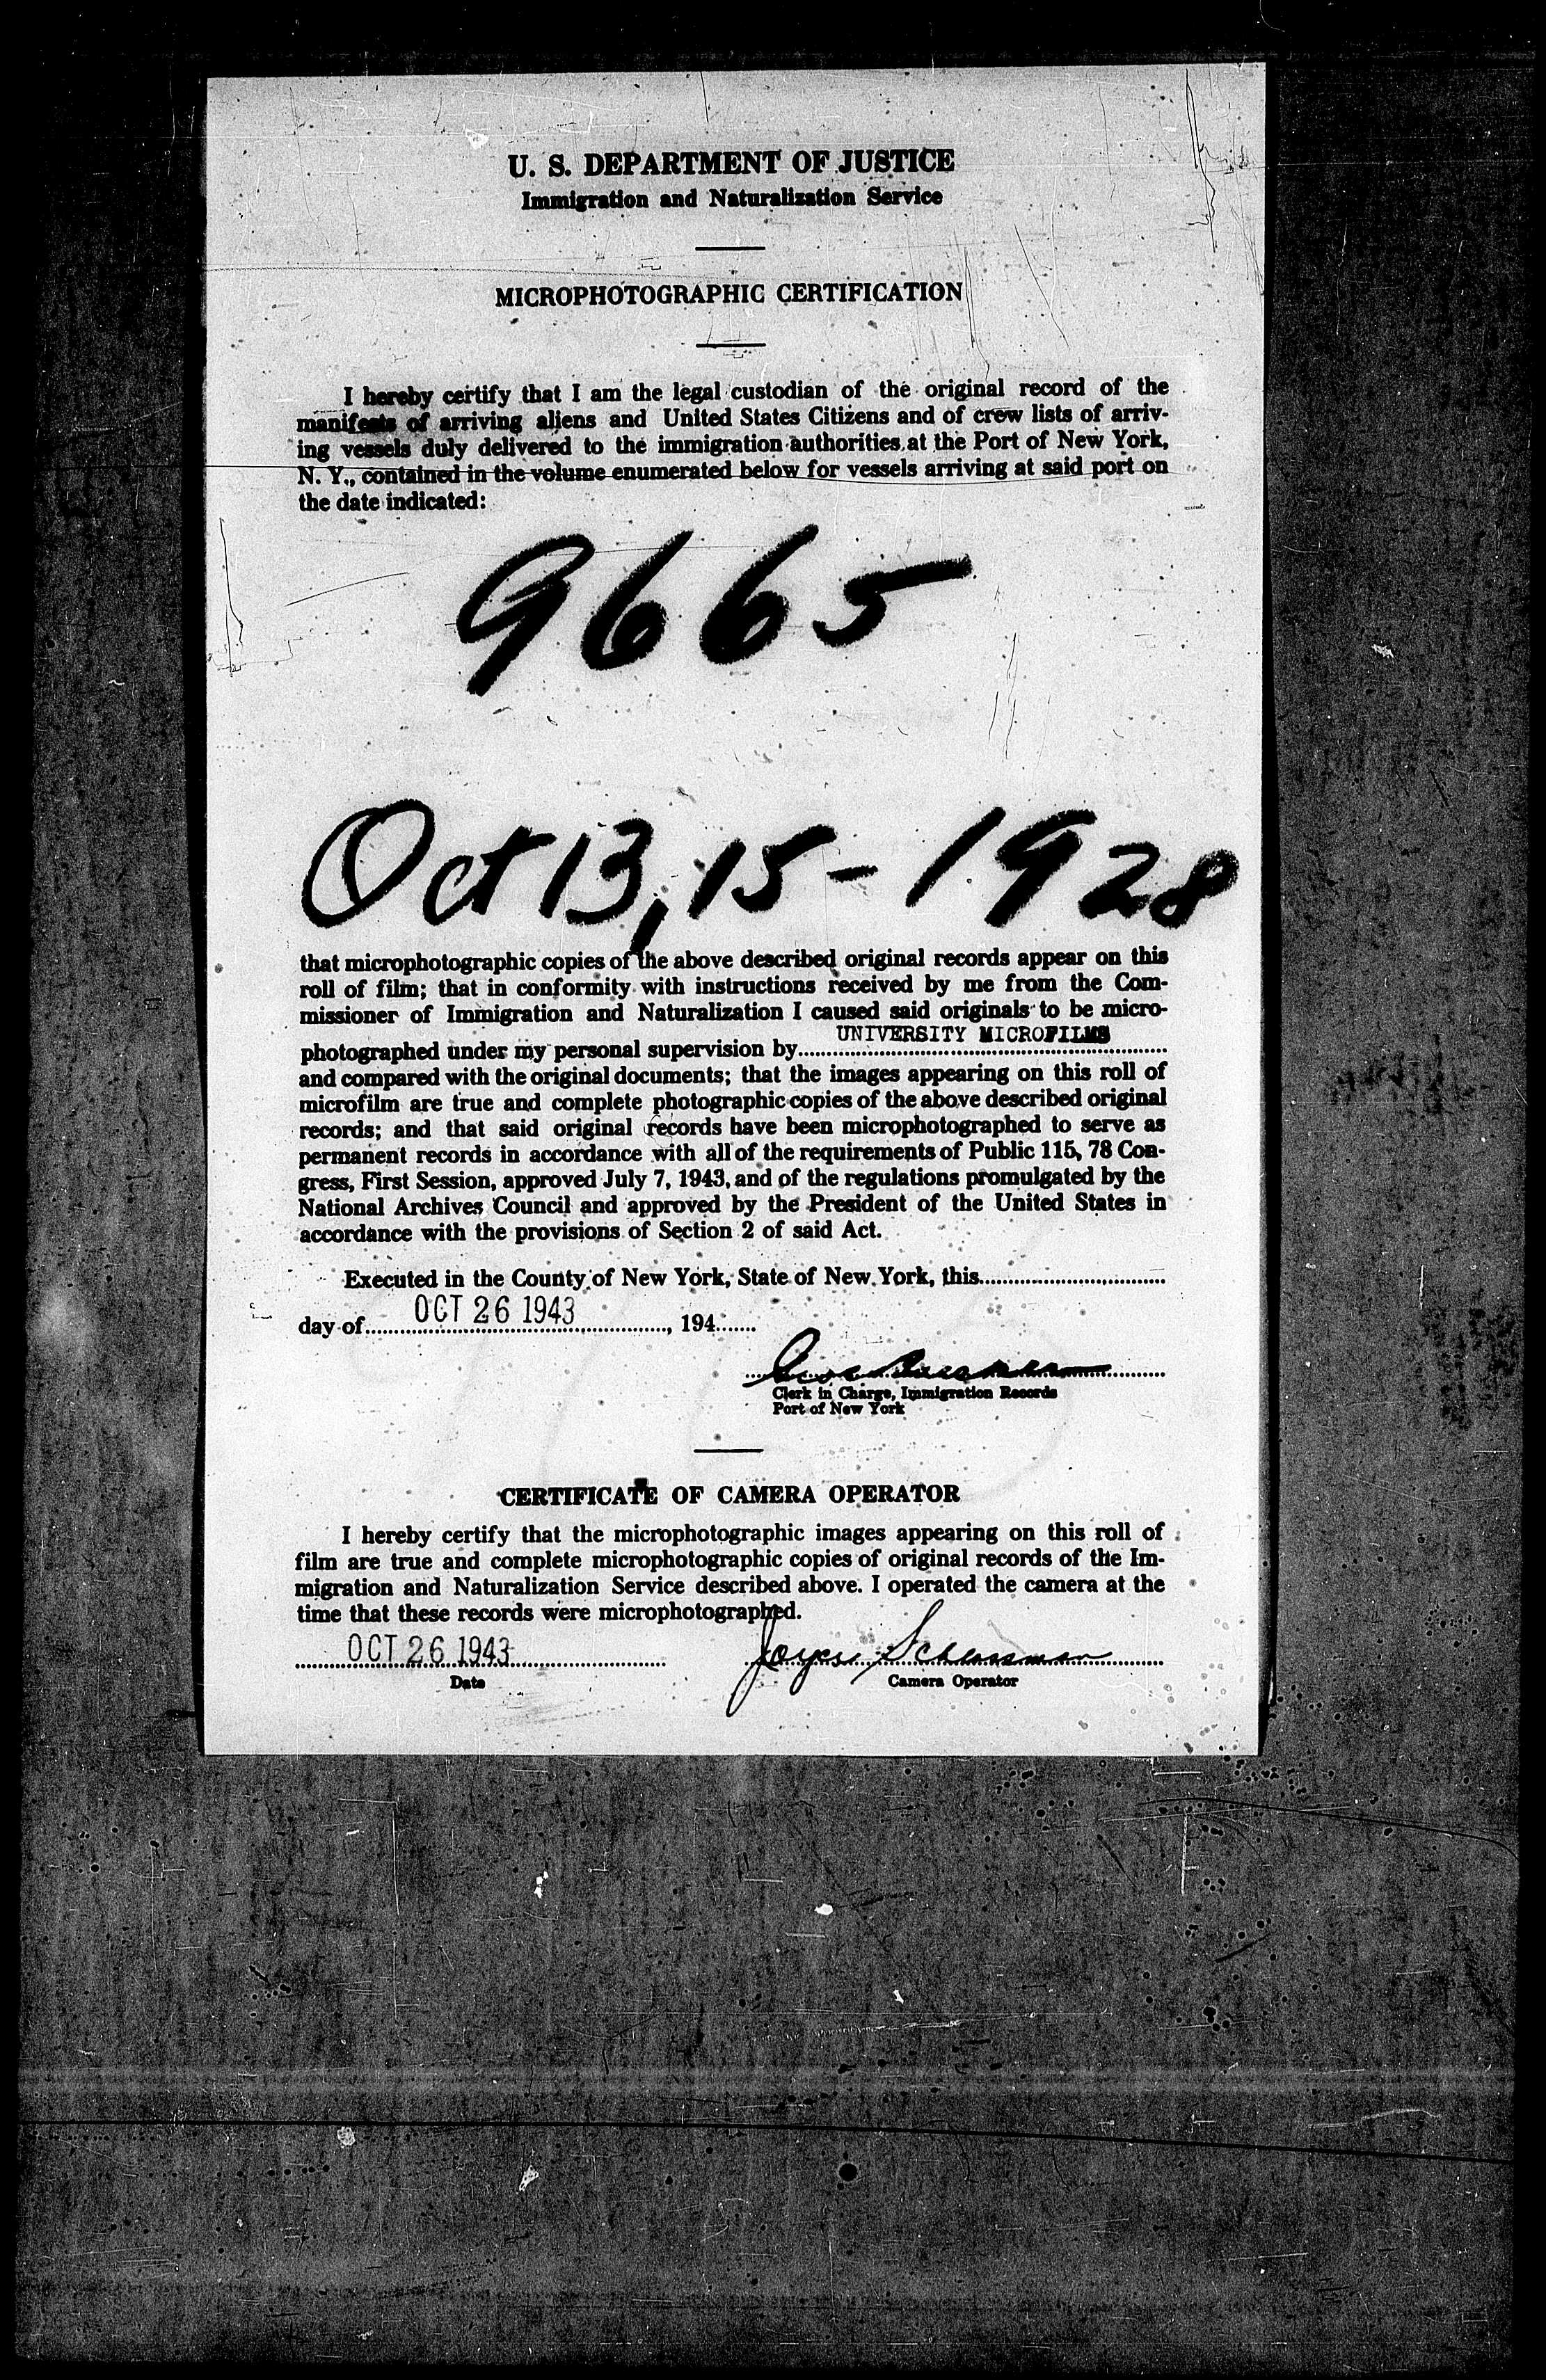 U. S. DEPARTMENT OF JUSTICE
Immigration and Naturalization Service
MICROPHOTOGRAPHIC CERTIFICATION
I hereby certify that I am the legal custodian of the original record of the
manifests of arriving aliens and United States Citizens and of crew lists of arriv-
ing vessels duly delivered to the immigration authorities at the Port of New York,
N. Y., contained in the volume enumerated below for vessels arriving at said port on
the date indicated:
9665
Oct 13, 15 - 1928
that microphotographic copies of the above described original records appear on this
roll of film; that in conformity with instructions received by me from the Com-
missioner of Immigration and Naturalization I caused said originals to be micro-
photographed under my personal supervision by UNIVERSITY MICROFILMS
and compared with the original documents; that the images appearing on this roll of
microfilm are true and complete photographic copies of the above described original
records; and that said original records have been microphotographed to serve as
permanent records in accordance with all of the requirements of Public 115, 78 Con-
gress, First Session, approved July 7, 1943, and of the regulations promulgated by the
National Archives Council and approved by the President of the United States in
accordance with the provisions of Section 2 of said Act.
Executed in the County of New York, State of New York, this
day of OCT 26 1943, 194
Clerk in Charge, Immigration Records
Port of New York
CERTIFICATE OF CAMERA OPERATOR
I hereby certify that the microphotographic images appearing on this roll of
film are true and complete microphotographic copies of original records of the Im-
migration and Naturalization Service described above. I operated the camera at the
time that these records were microphotographed.
OCT 26 1943 Joyce
Date Camera Operator